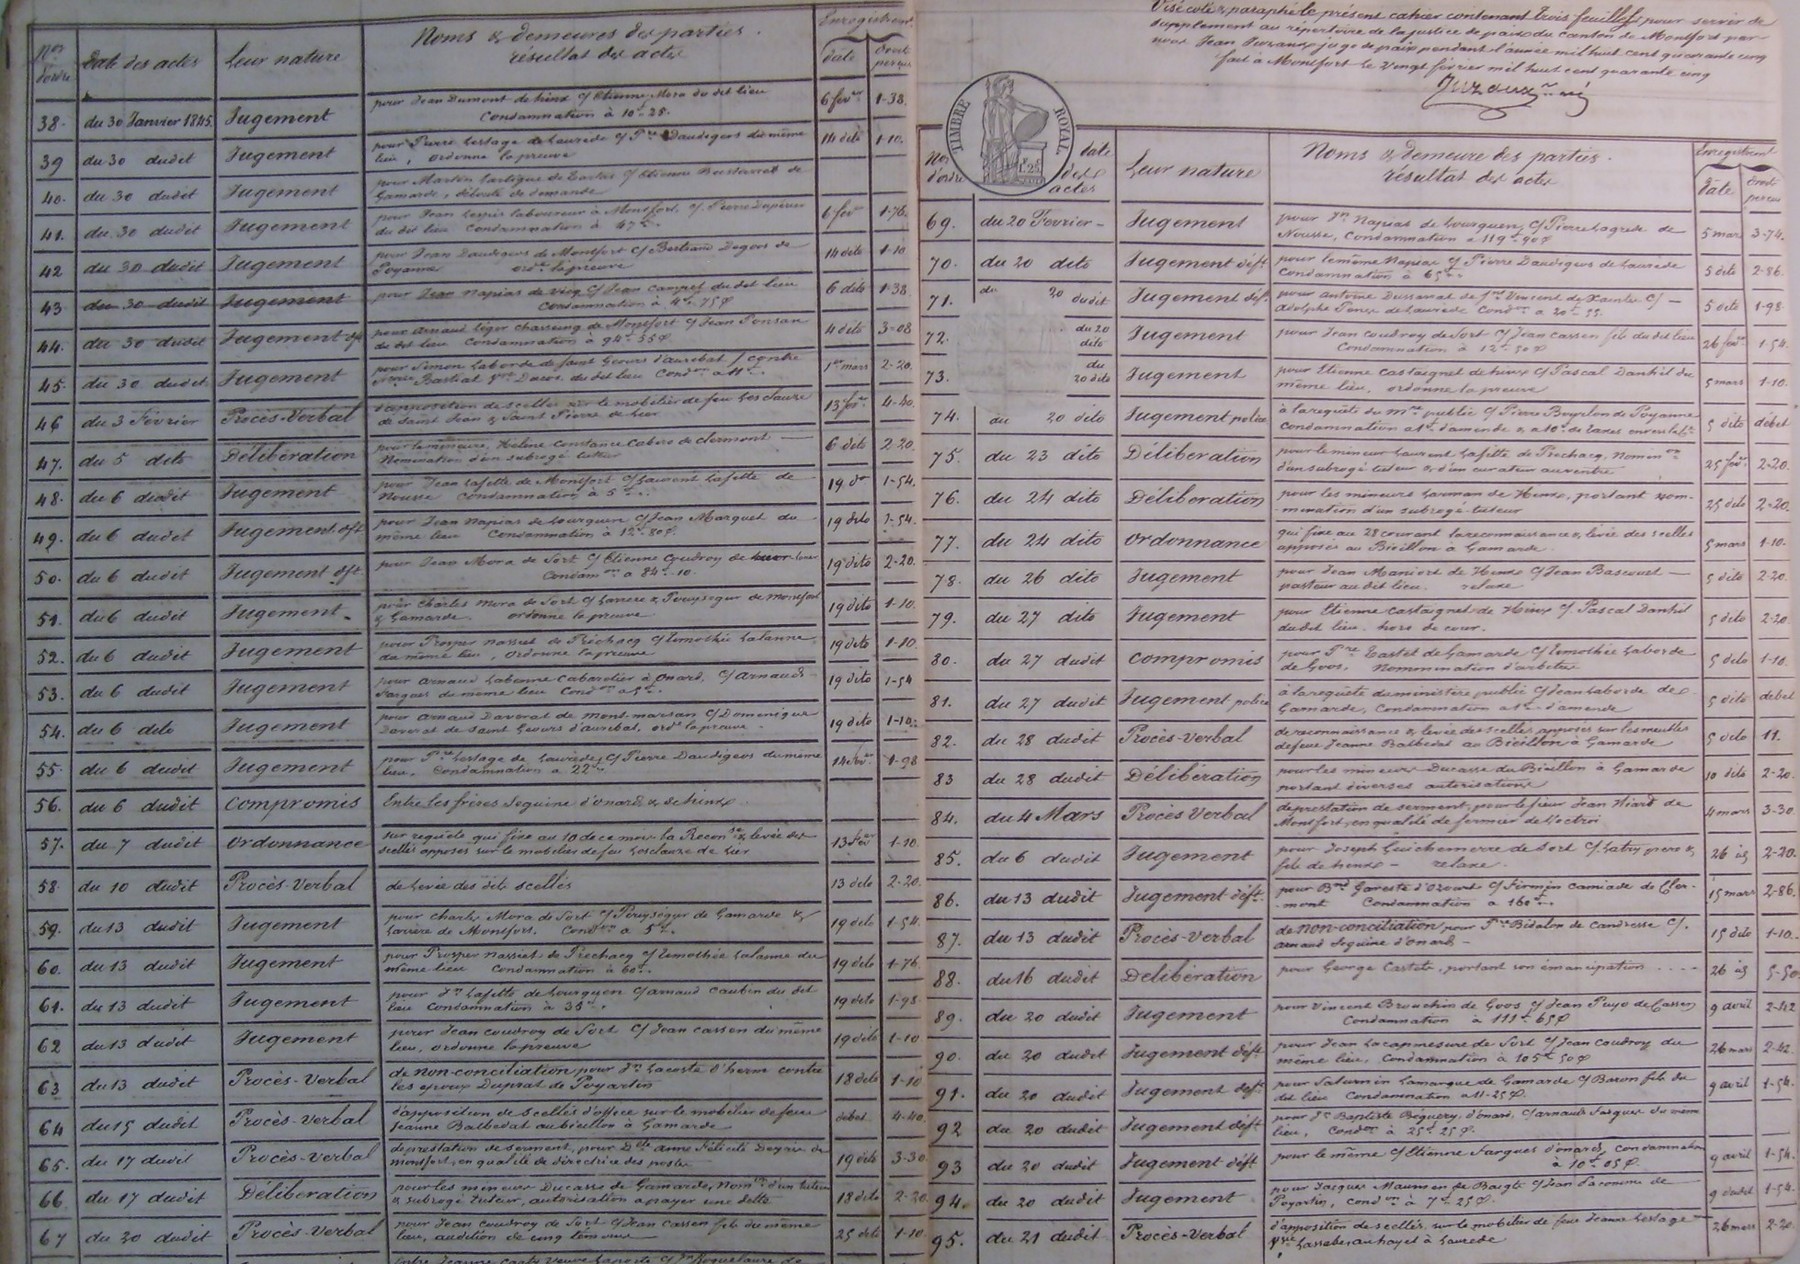 Nos d'ordre
Date des actes
Leur nature
Noms & demeures des parties.
résultat des actes
Enregistrement
date
droits perçus
38. du 30 Janvier 1845. Jugement pour Jean Dumont de hinx c/ Etienne Mora du dit lieu 6 fevr 1-38.
Condamnation à 10f-25.
39 du 30 dudit Jugement pour Pierre Lestage de Laurède c/ Pre Daudigeos du même 14 dito 1-10.
lieu, ordonne la preuve
40. du 30 dudit Jugement pour Martin Lartigue de c/ Etienne de
Gamarde, déboute de demande
41. du 30 dudit Jugement pour Jean Lespès laboureur à Monfort, c/ Pierre Duperier 6 fevr 1-76.
du dit lieu Condamnation à 47f.
42 du 30 dudit Jugement pour Jean Daudigeos de Montfort c/ Bertrand Degos de 14 dito 1-10
Poyanne ordne la preuve
43 du 30 dudit Jugement pour Jean Napias de Vicq c/ Jean Campet du dit lieu 6 dito 1-38
Condamnation à 4f-75c
44. du 30 dudit Jugement dft pour Arnaud Léger de Montfort c/ Jean Ponsan 4 dito 3-08
du dit lieu Condamnation à 94f-55c
45. du 30 dudit Jugement pour Simon Laborde de Saint Geours d'auribat / contre 1er mars 2-20.
du dit lieu Condon à 11f.
46 du 3 Février Procès-Verbal d'apposition de scellés sur le mobilier de feu 13 fevr 4-40.
de Saint Jean & Saint Pierre de Lier
47. du 5 dito Délibération pour la mineure, Hélène Constance Cabos de Clermont — 6 dito 2-20.
Nomination d'un subrogé tuteur
48. du 6 dudit Jugement pour Jean Lafitte de Montfort c/ Laurent Lafitte de 19 do 1-54.
Nousse Condamnation à 5f.
49. du 6 dudit Jugement dft pour Jean Napias de Lourquen c/ Jean Marquet du 19 dito 1-54.
même lieu Condamnation à 12f-80c.
50. du 6 dudit Jugement dft. pour Jean Mora de Sort c/ Etienne Coudroy de 19 dito 2-20.
Condamon à 84f-10.
51. du 6 dudit Jugement. pour Charles Mora de Sort c/ Larrere & Peuységur de Monfort 19 dito 1-10.
& Gamarde ordonne la preuve
52. du 6 dudit Jugement pour Prosper Nassiet de Préchacq c/ Timothée Lalanne 19 dito 1-10.
du même lieu, ordonne la preuve
53. du 6 dudit Jugement pour Arnaud Labenne Cabaretier à Onard, c/ Arnaud 19 dito 1-54
Fargues du même lieu Condon à 5f.
54. du 6 dito Jugement pour Arnaud Daverat de mont-marsan c/ Dominique 19 dito 1-10.
Daverat de Saint Geours d'auribat, ordne la preuve
55. du 6 dudit Jugement pour Pre Lestage de Laurède, c/ Pierre Daudigeos du même 14 fevr. 1-98
lieu. Condamnation à 22f
56. du 6 dudit Compromis Entre les frères Seguine d'onard & de hinx.
57. du 7 dudit Ordonnance sur requête qui fixe au 10 de ce mois la Reconce & levée des 13 fevr 1-10.
scellés apposés sur le mobilier de feu de Lier
58. du 10 dudit Procès-Verbal de Levée des dits scellés 13 dito 2-20.
59. du 13 dudit Jugement pour Charles Mora de Sort c/ Peuységur de Gamarde & 19 dito 1-54.
Larrère de Monfort. Condon à 5f.
60. du 13 dudit Jugement pour Prosper Nassiet de Préchacq c/ Timothée Lalanne du 19 dito 1-76
même lieu Condamnation à 60f.
61. du 13 dudit Jugement pour Jn Lafitte de Lourquen c/ arnaud Caubin du dit 19 dito 1-98
lieu Condamnation à 35f.
62 du 13 dudit Jugement pour Jean Coudroy de Sort c/ Jean Cassen du même 19 dito 1-10
lieu, ordonne la preuve
63 du 13 dudit Procès-Verbal de non-conciliation pour Jn Lacoste d'herm contre 18 dito 1-10
les époux Duprat de Poyartin
64 du 15 dudit Procès-Verbal d'apposition de Scellés d'office sur le mobilier de feue debet 4-40.
Jeanne Balhedat au bieillon à Gamarde
65. du 17 dudit Procès-Verbal de prestation de serment, pour Dlle Anne Félicité Deyris de 19 dito 3-30
monfort, en qualité de directrice des postes
66 du 17 dudit Délibération pour les mineurs Ducasse de Gamarde, Nomon d'un tuteur 18 dito 2-20.
& subrogé tuteur, autorisation à payer une dette
67 du 20 dudit Procès-Verbal pour Jean Coudroy de Sort c/ Jean Cassen fils du même 25 dito 1-10.
lieu, audition de cinq témoins
Visé coté & paraphé le présent cahier contenant trois feuillets pour servir de
supplément au répertoire de la justice de paix du canton de Montfort par
nous Jean Juzanx juge de paix pendant l'année mil huit cent quarante cinq
fait à Montfort le vingt février mil huit cent quarante cinq
Juzanx
TIMBRE ROYAL
1f.25
Nos d'ordre
date des actes
Leur nature
Noms & demeure des parties.
résultat des actes
Enregistrement
Date
droits perçus
69. du 20 Fevrier - Jugement pour Jn Napias de Lourquen, c/ Pierre Lagrede de 5 mars 3-74.
Nousse, Condamnation à 119f-90c
70. du 20 dito Jugement dft. pour le même Napias c/ Pierre Daudigeos de Laurède 5 dito 2-86.
Condamnation à 65f.
71. du 20 dudit Jugement dft. pour Antoine Dussarrat de St Vincent de Xaintes c/ — 5 dito 1-98.
Adolphe de Laurède Condon à 20f-55
72. du 20 dito Jugement pour Jean Coudroy de Sort c/ Jean Cassen fils du dit lieu 26 fevr 1-54.
Condamnation à 12f-50c
73. du 20 dito Jugement pour Etienne Castaignet de hinx c/ Pascal Danhil du 5 mars 1-10.
même lieu. ordonne la preuve
74. du 20 dito Jugement police à la requête du mre public c/ Pierre de Poyanne 5 dito débet
Condamnation à 1f. d'amende
75. du 23 dito Délibération pour le mineur Laurent Lafitte de Préchacq, Nominon 25 fevr 2-20.
d'un subrogé tuteur & d'un curateur au ventre
76. du 24 dito Délibération pour les mineurs Larman de Hinx, portant nom- 25 dito 2-20.
-mination d'un subrogé-tuteur
77. du 24 dito Ordonnance qui fixe au 28 courant la reconnaissance & levée des scellés 5 mars 1-10.
apposés au Bieillon à Gamarde.
78. du 26 dito Jugement pour Jean Maniort de Hinx c/ Jean Bascouet — 5 dito 2-20.
pasteur au dit lieu. relaxe
79. du 27 dito Jugement pour Etienne Castaignet de Hinx c/ Pascal Danhil 5 dito 2-20.
du dit lieu. hors de cour.
80. du 27 dudit Compromis pour Pre Tastet de Gamarde c/ Timothée Laborde 5 dito 1-10.
de Goos, Nommination d'arbitre
81. du 27 dudit Jugement police à la requête du ministère public c/ Jean Laborde de 5 dito debet
Gamarde, Condamnation à 1f d'amende
82. du 28 dudit Procès-Verbal de reconnaissance & levée des scellés apposés sur les meubles 5 dito 11.
de feue Jeanne Balhedat au Bieillon à Gamarde
83 du 28 dudit Délibération pour les mineurs Ducasse du Bieillon à Gamarde 10 dito 2-20.
portant diverses autorisations
84. du 4 Mars Procès Verbal de prestation de serment, pour le sieur Jean Hiard de 4 mars 3-30.
Montfort, en qualité de fermier de l'octroi
85. du 6 dudit Jugement pour Joseph Guichemerre de Sort c/ Latry père & 26 2-20.
fils de hinx — relaxe.
86. du 13 dudit Jugement dft. pour Bnd Gareste d'Ozourt c/ Firmin Camiade de Cler- 15 mars 2-86.
-mont Condamnation à 160f.
87. du 13 dudit Procès-Verbal de non-conciliation pour Pre Bidalon de Candresse c/. 15 dito 1-10.
arnaud Seguine d'onard —
88. du 16 dudit Délibération pour George Castets, portant son émancipation .... 26 5-50
89. du 20 dudit Jugement pour Vincent Brouchin de Goos c/ Jean Puyo de Cassen 9 avril 2-42
Condamnation à 111f-65c
90. du 20 dudit Jugement dft. pour Jean Lacapmesure de Sort c/ Jean Coudroy du 26 mars 2-42.
même lieu, Condamnation à 105f-50c
91. du 20 dudit Jugement dft. pour Saturnin Lamarque de Gamarde c/ Baron fils du 9 avril 1-54.
dit lieu Condamnation à 11-25c.
92 du 20 dudit Jugement dft pour Jn Baptiste Beguery, d'onard, c/ arnaud Fargues du même
lieu, Condon à 25f-25c.
93 du 20 dudit Jugement dft pour le même c/ Etienne Fargues d'onard, condamnation 9 avril 1-54.
à 10f-05c.
94. du 20 dudit Jugement pour Jacques Maumen de Baigts c/ Jean Lacomme de 9 dudit 1-54.
Poyartin, condon à 7f-25c.
95. du 21 dudit Procès-Verbal d'apposition de scellés, sur le mobilier de feue Jeanne Lestage 26 mars 2-20.
au hayet à Laurede